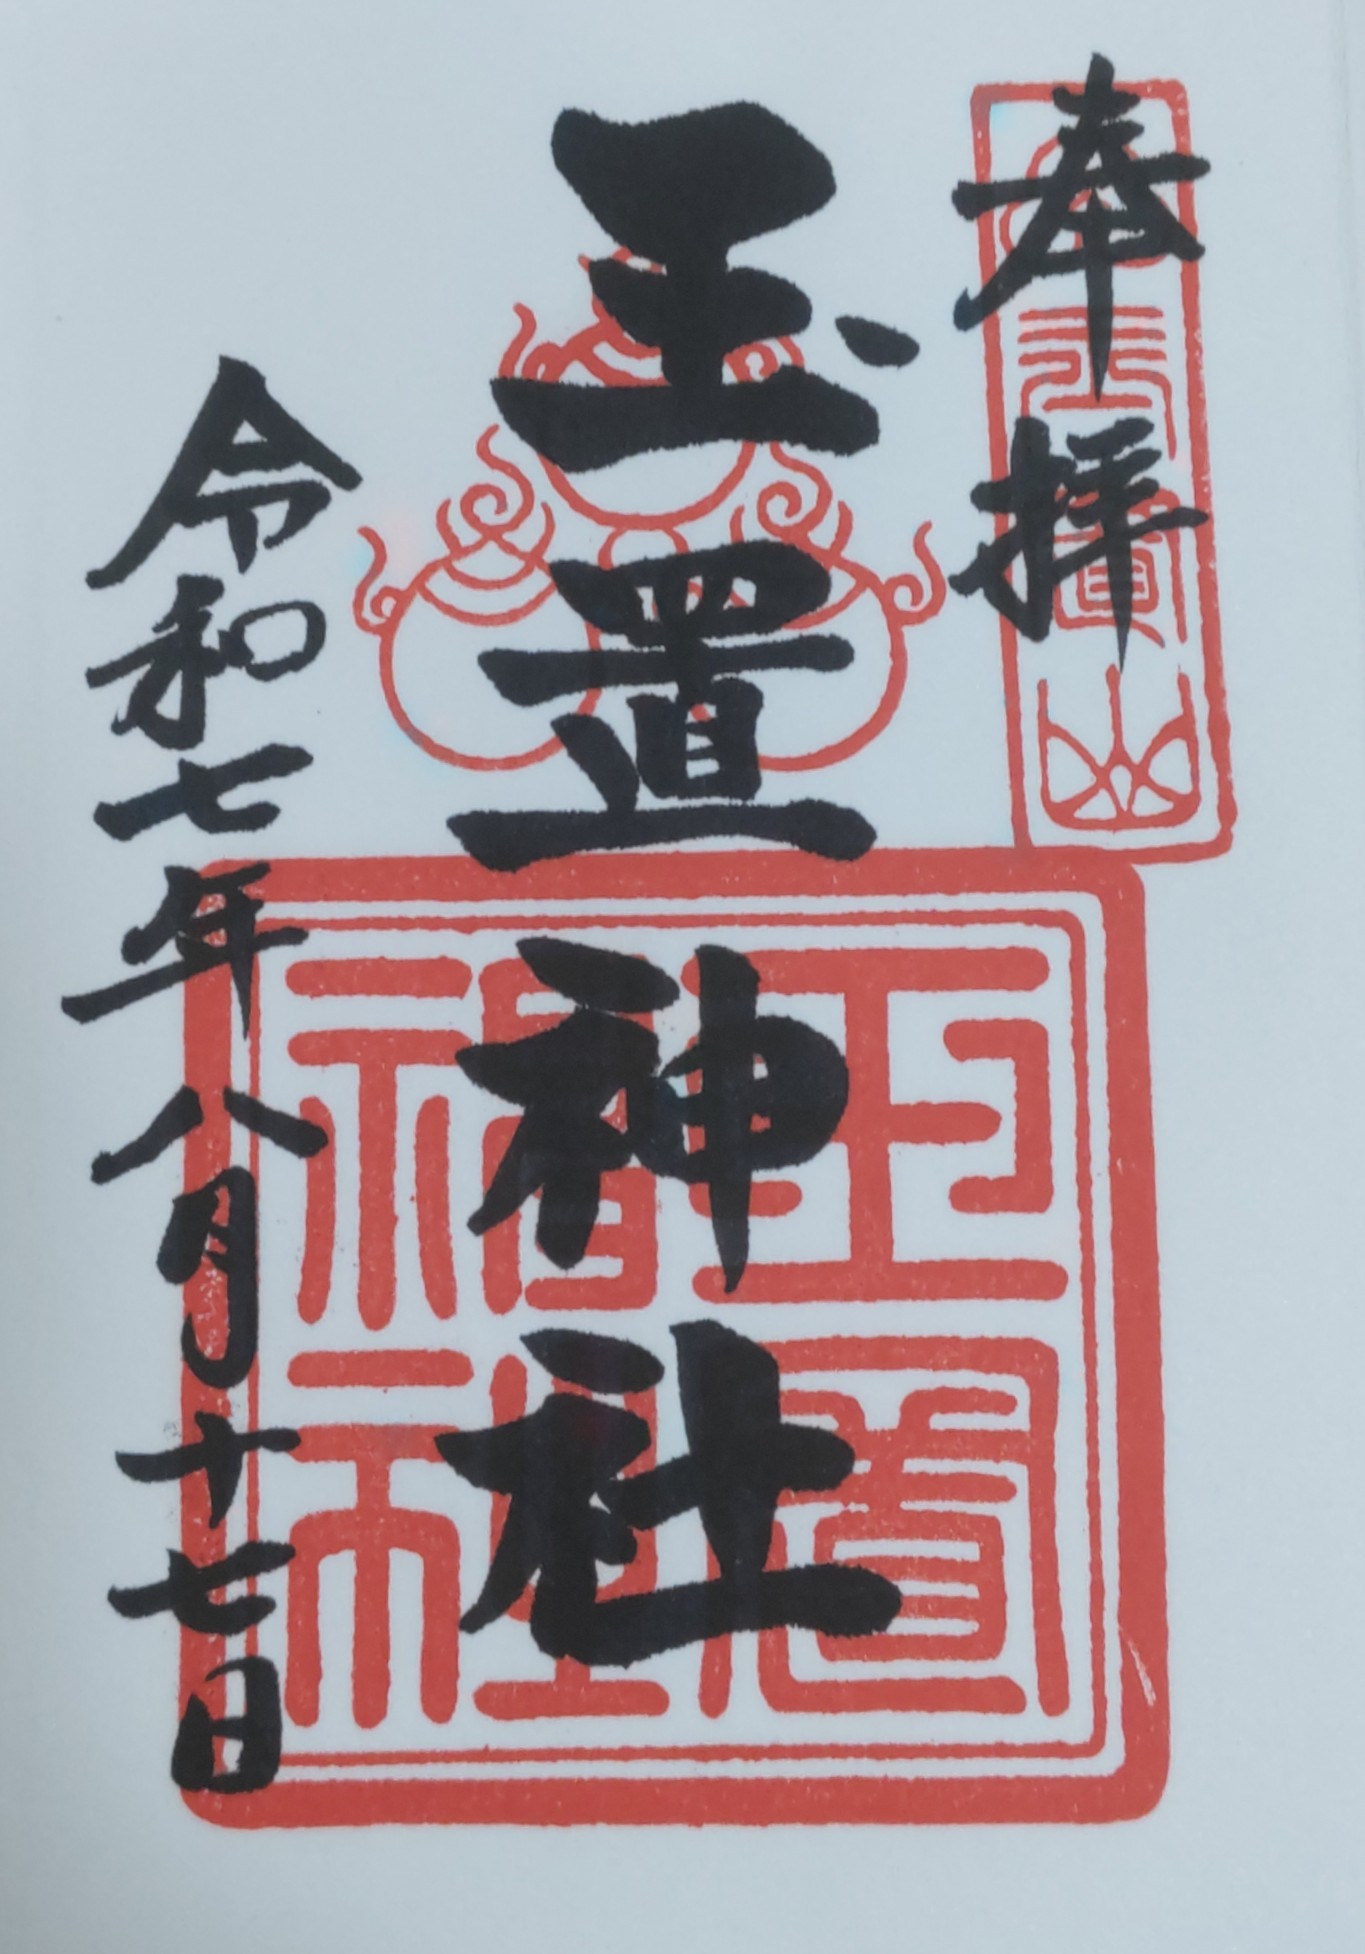 奉拝
玉置神社
令和七年八月十七日
玉置
神社